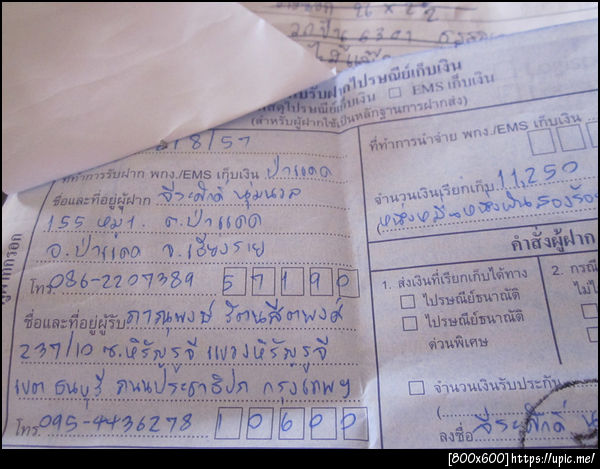 ใบรับฝากไปรษณีย์เก็บเงิน
พัสดุไปรษณีย์เก็บเงิน □ EMS เก็บเงิน
(สำหรับผู้ฝากใช้เป็นหลักฐานการฝากส่ง)
/8/57
ที่ทำการรับฝาก พกง./EMS เก็บเงิน ป่าแดด
ชื่อและที่อยู่ผู้ฝาก จีระศักดิ์ นุมนวล
155 หมู่ 1. ต.ป่าแดด
อ.ป่าแดด จ.เชียงราย
โทร. 086-2207389 57190
ชื่อและที่อยู่ผู้รับ ภาณุพงษ์ รัตนสีตพงศ์
237/10 ซ.หิรัญรูจี แขวงหิรัญรูจี
เขต ธนบุรี ถนนประชาธิปก กรุงเทพฯ
โทร. 095-4436278 10600
ที่ทำการนำจ่าย พกง./EMS เก็บเงิน
จำนวนเงินเรียกเก็บ 11,250
(หนึ่งหมื่นหนึ่งพันสองร้อ
คำสั่งผู้ฝาก
1. ส่งเงินที่เรียกเก็บได้ทาง
□ ไปรษณีย์ธนาณัติ
□ ไปรษณีย์ธนาณัติ
ด่วนพิเศษ
2. กรณี
□ จำนวนเงินรับประกัน
ลงชื่อ จีระศักดิ์ นุ
ผู้ฝากกรอก
[800x600] https://upic.me/